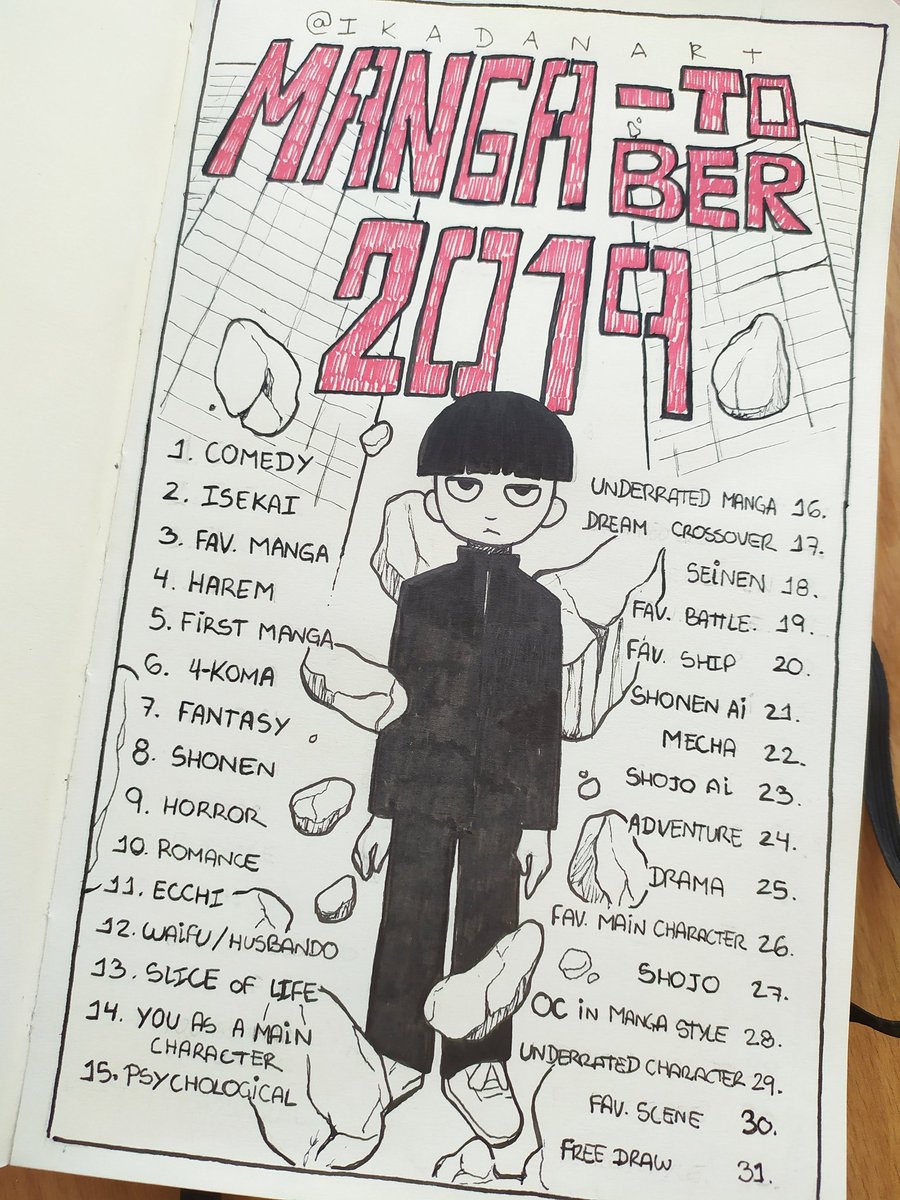 @IKADANART
MANGA-TO
BER
2019
1. COMEDY
2. ISEKAI
3. FAV. MANGA
4. HAREM
5. FiRST MANGA
6. 4-KOMA
7. FANTASY
8. SHONEN
9. HORROR
10. ROMANCE
11. ECCHI
12. WAiFU/HUSBANDO
13. SLICE OF LIFE
14. YOU AS A MAiN
CHARACTER
15. PSYCHOLOGiCAL
UNDERRATED MANGA 16.
DREAM CROSSOVER 17.
SEiNEN 18.
FAV. BATTLE. 19.
FAV. SHIP 20.
SHONEN Ai 21.
MECHA 22.
SHOJO Ai 23.
ADVENTURE 24.
DRAMA 25.
FAV. MAIN CHARACTER 26.
SHOJO 27.
OC iN MANGA STYLE 28.
UNDERRATED CHARACTER 29.
FAV. SCENE 30.
FREE DRAW 31.